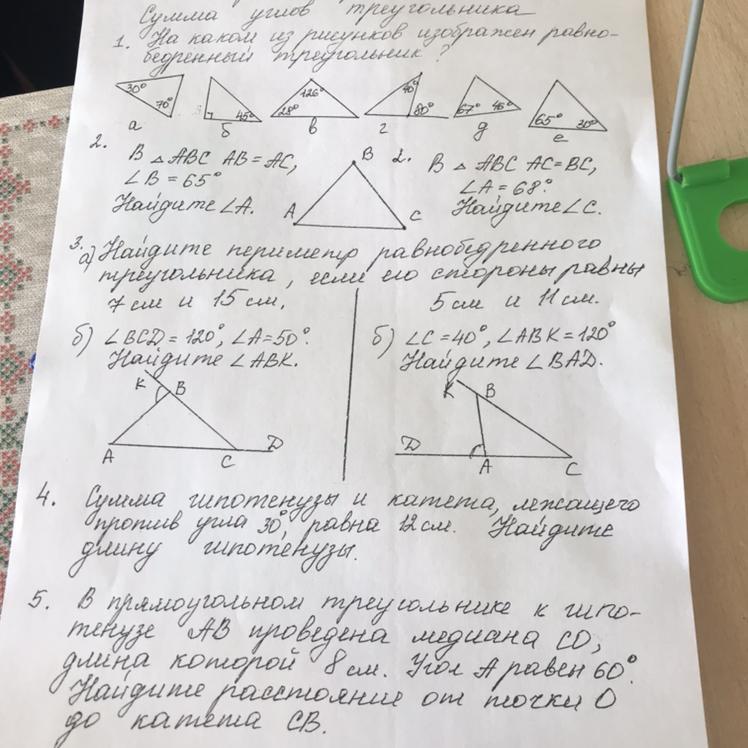 Сумма углов треугольника
1. На каком из рисунков изображен равно-
бедренный треугольник?
30° 70° 45° 126° 28° 40° 80° 67° 46° 65° 30°
а б в г д е
2. В △ ABC AB = AC,
∠B = 65°
Найдите ∠A.
A B C
2. В △ ABC AC = BC,
∠A = 68°.
Найдите ∠C.
3. а) Найдите периметр равнобедренного
треугольника, если его стороны равны
7 см и 15 см. 5 см и 11 см.
б) ∠BCD = 120°, ∠A = 50°.
Найдите ∠ABK.
K B
A C D
б) ∠C = 40°, ∠ABK = 120°
Найдите ∠BAD.
K B
D A C
4. Сумма гипотенузы и катета, лежащего
против угла 30°, равна 12 см. Найдите
длину гипотенузы.
5. В прямоугольном треугольнике к гипо-
тенузе AB проведена медиана CO,
длина которой 8 см. Угол A равен 60°.
Найдите расстояние от точки O
до катета CB.